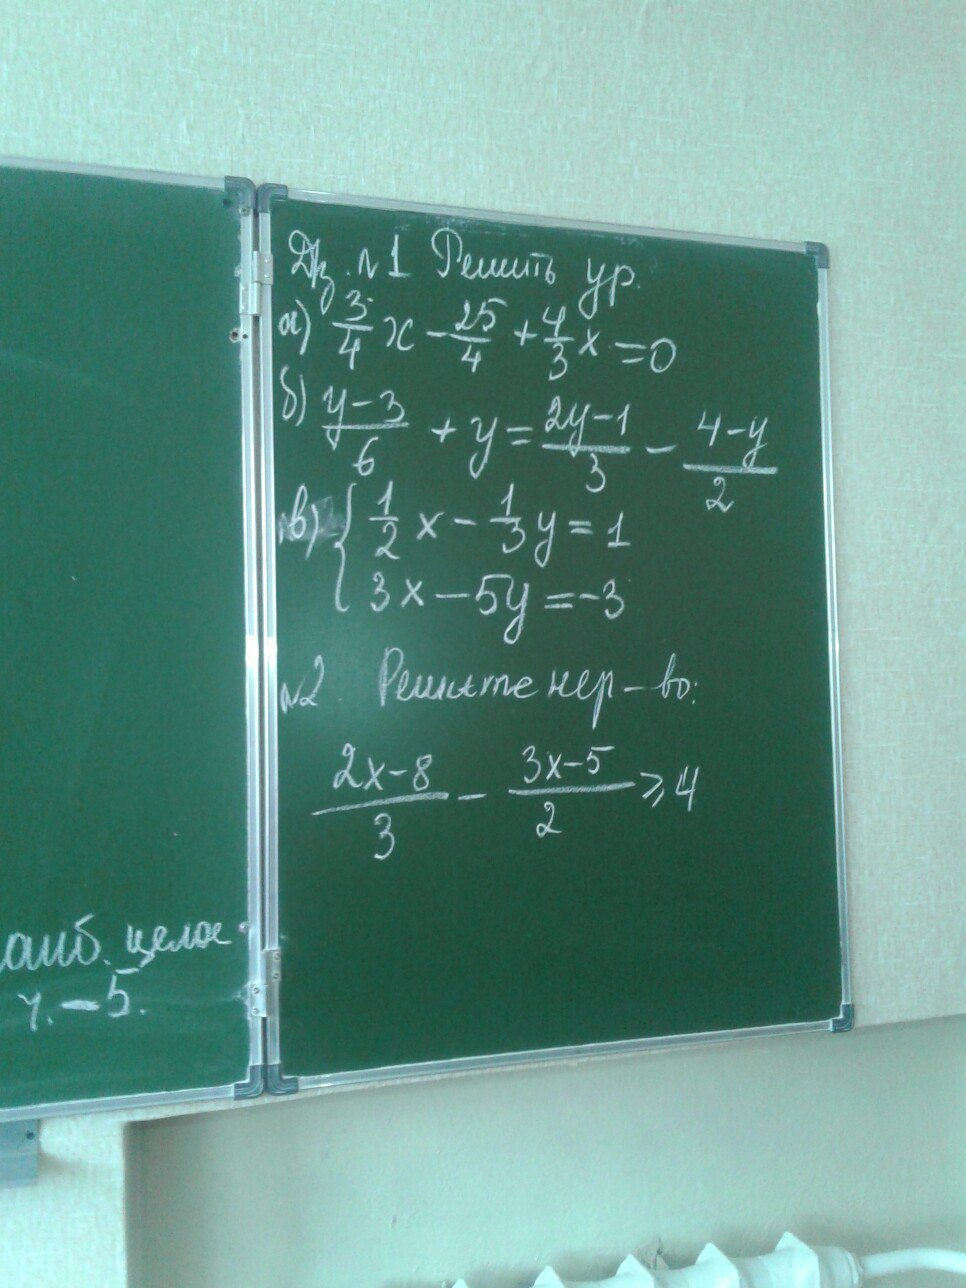 Д/з. №1 Решить ур.
а) 3/4 x - 25/4 + 4/3 x = 0
б) y-3/6 + y = 2y-1/3 - 4-y/2
в) { 1/2 x - 1/3 y = 1
3x - 5y = -3
№2. Решите нер-во:
2x-8/3 - 3x-5/2 ⩾ 4
наиб. целое
ч. -5.